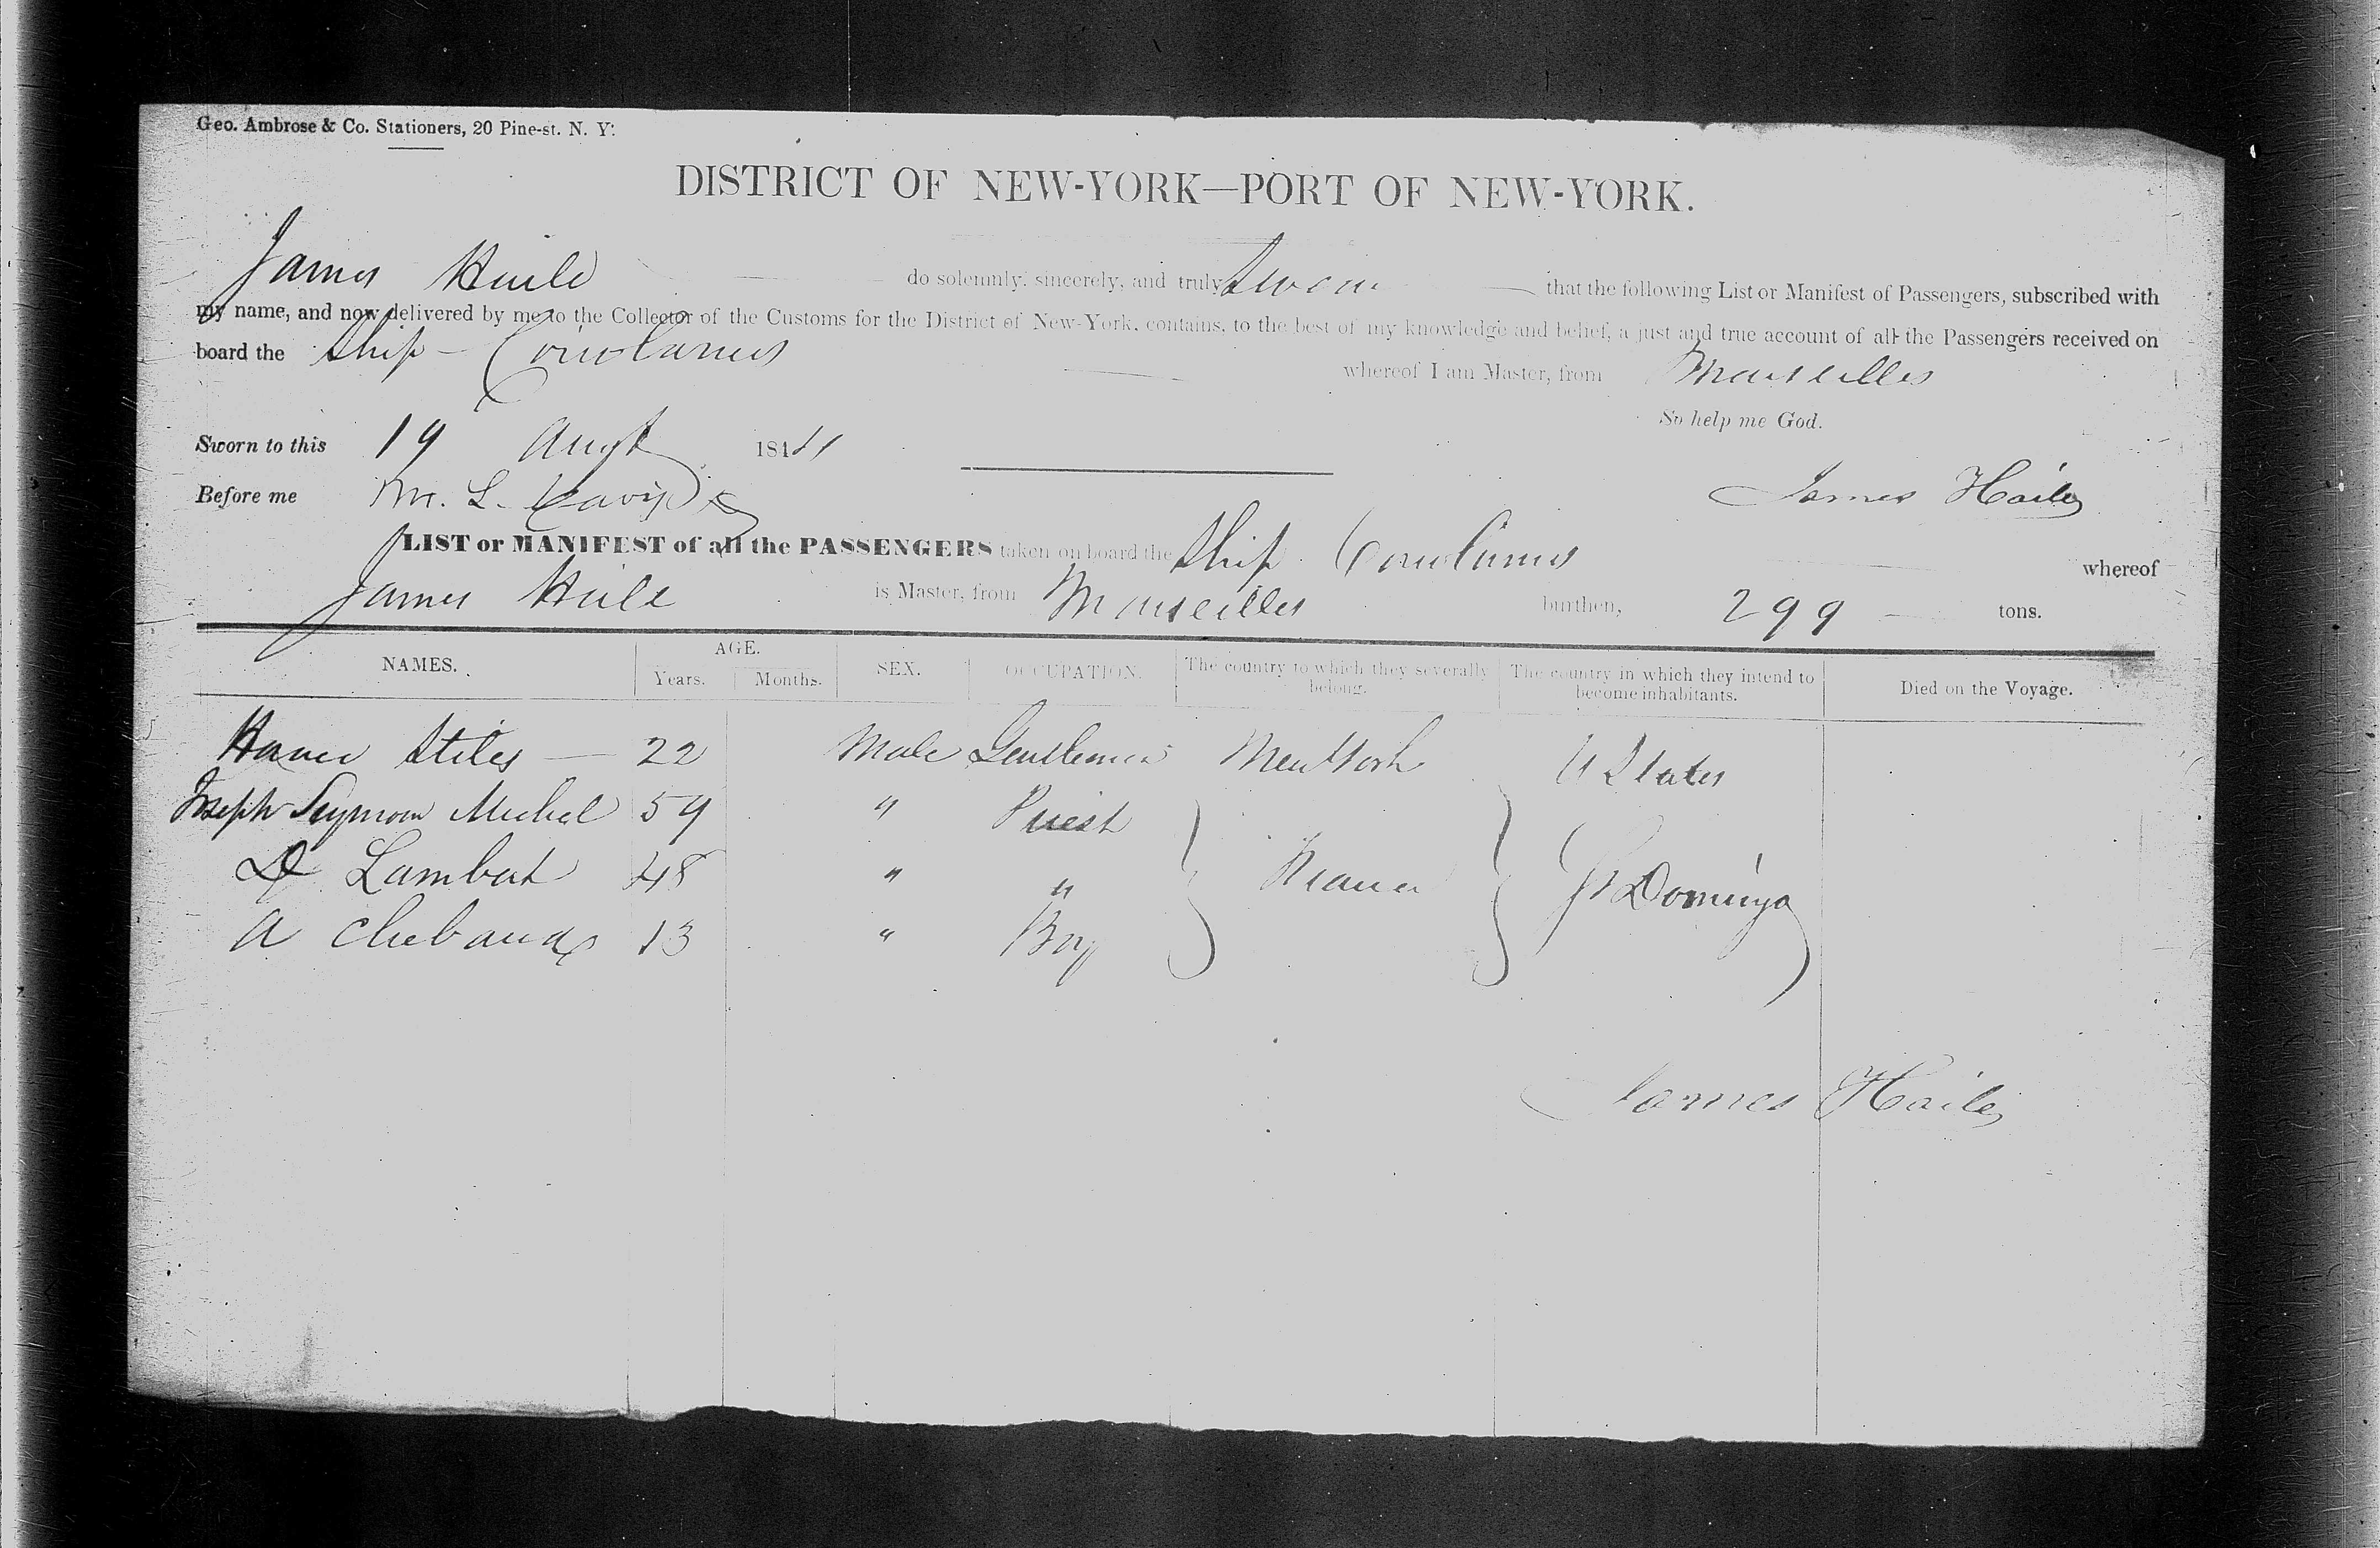 Geo. Ambrose & Co. Stationers, 20 Pine-st. N. Y.
DISTRICT OF NEW-YORK—PORT OF NEW-YORK.
James Haile do solemnly, sincerely, and truly swear that the following List or Manifest of Passengers, subscribed with
my name, and now delivered by me to the Collector of the Customs for the District of New-York, contains, to the best of my knowledge and belief, a just and true account of all the Passengers received on
board the Ship - Coriolanus whereof I am Master, from Marseilles
So help me God.
Sworn to this 19 Augt 184
Before me M. L. Davis James Haile
LIST or MANIFEST of all the PASSENGERS taken on board the Ship Coriolanus whereof
James Haile is Master, from Marseilles burthen, 299 tons.
NAMES. AGE. Years. Months. SEX. OCCUPATION. The country to which they severally belong. The country in which they intend to become inhabitants. Died on the Voyage.
Stiles 22 Male Gentleman New York U States
Joseph Seymour Michel 59 " Priest
Lambert 48 " " France St Domingo
A 13 " Boy
James Haile